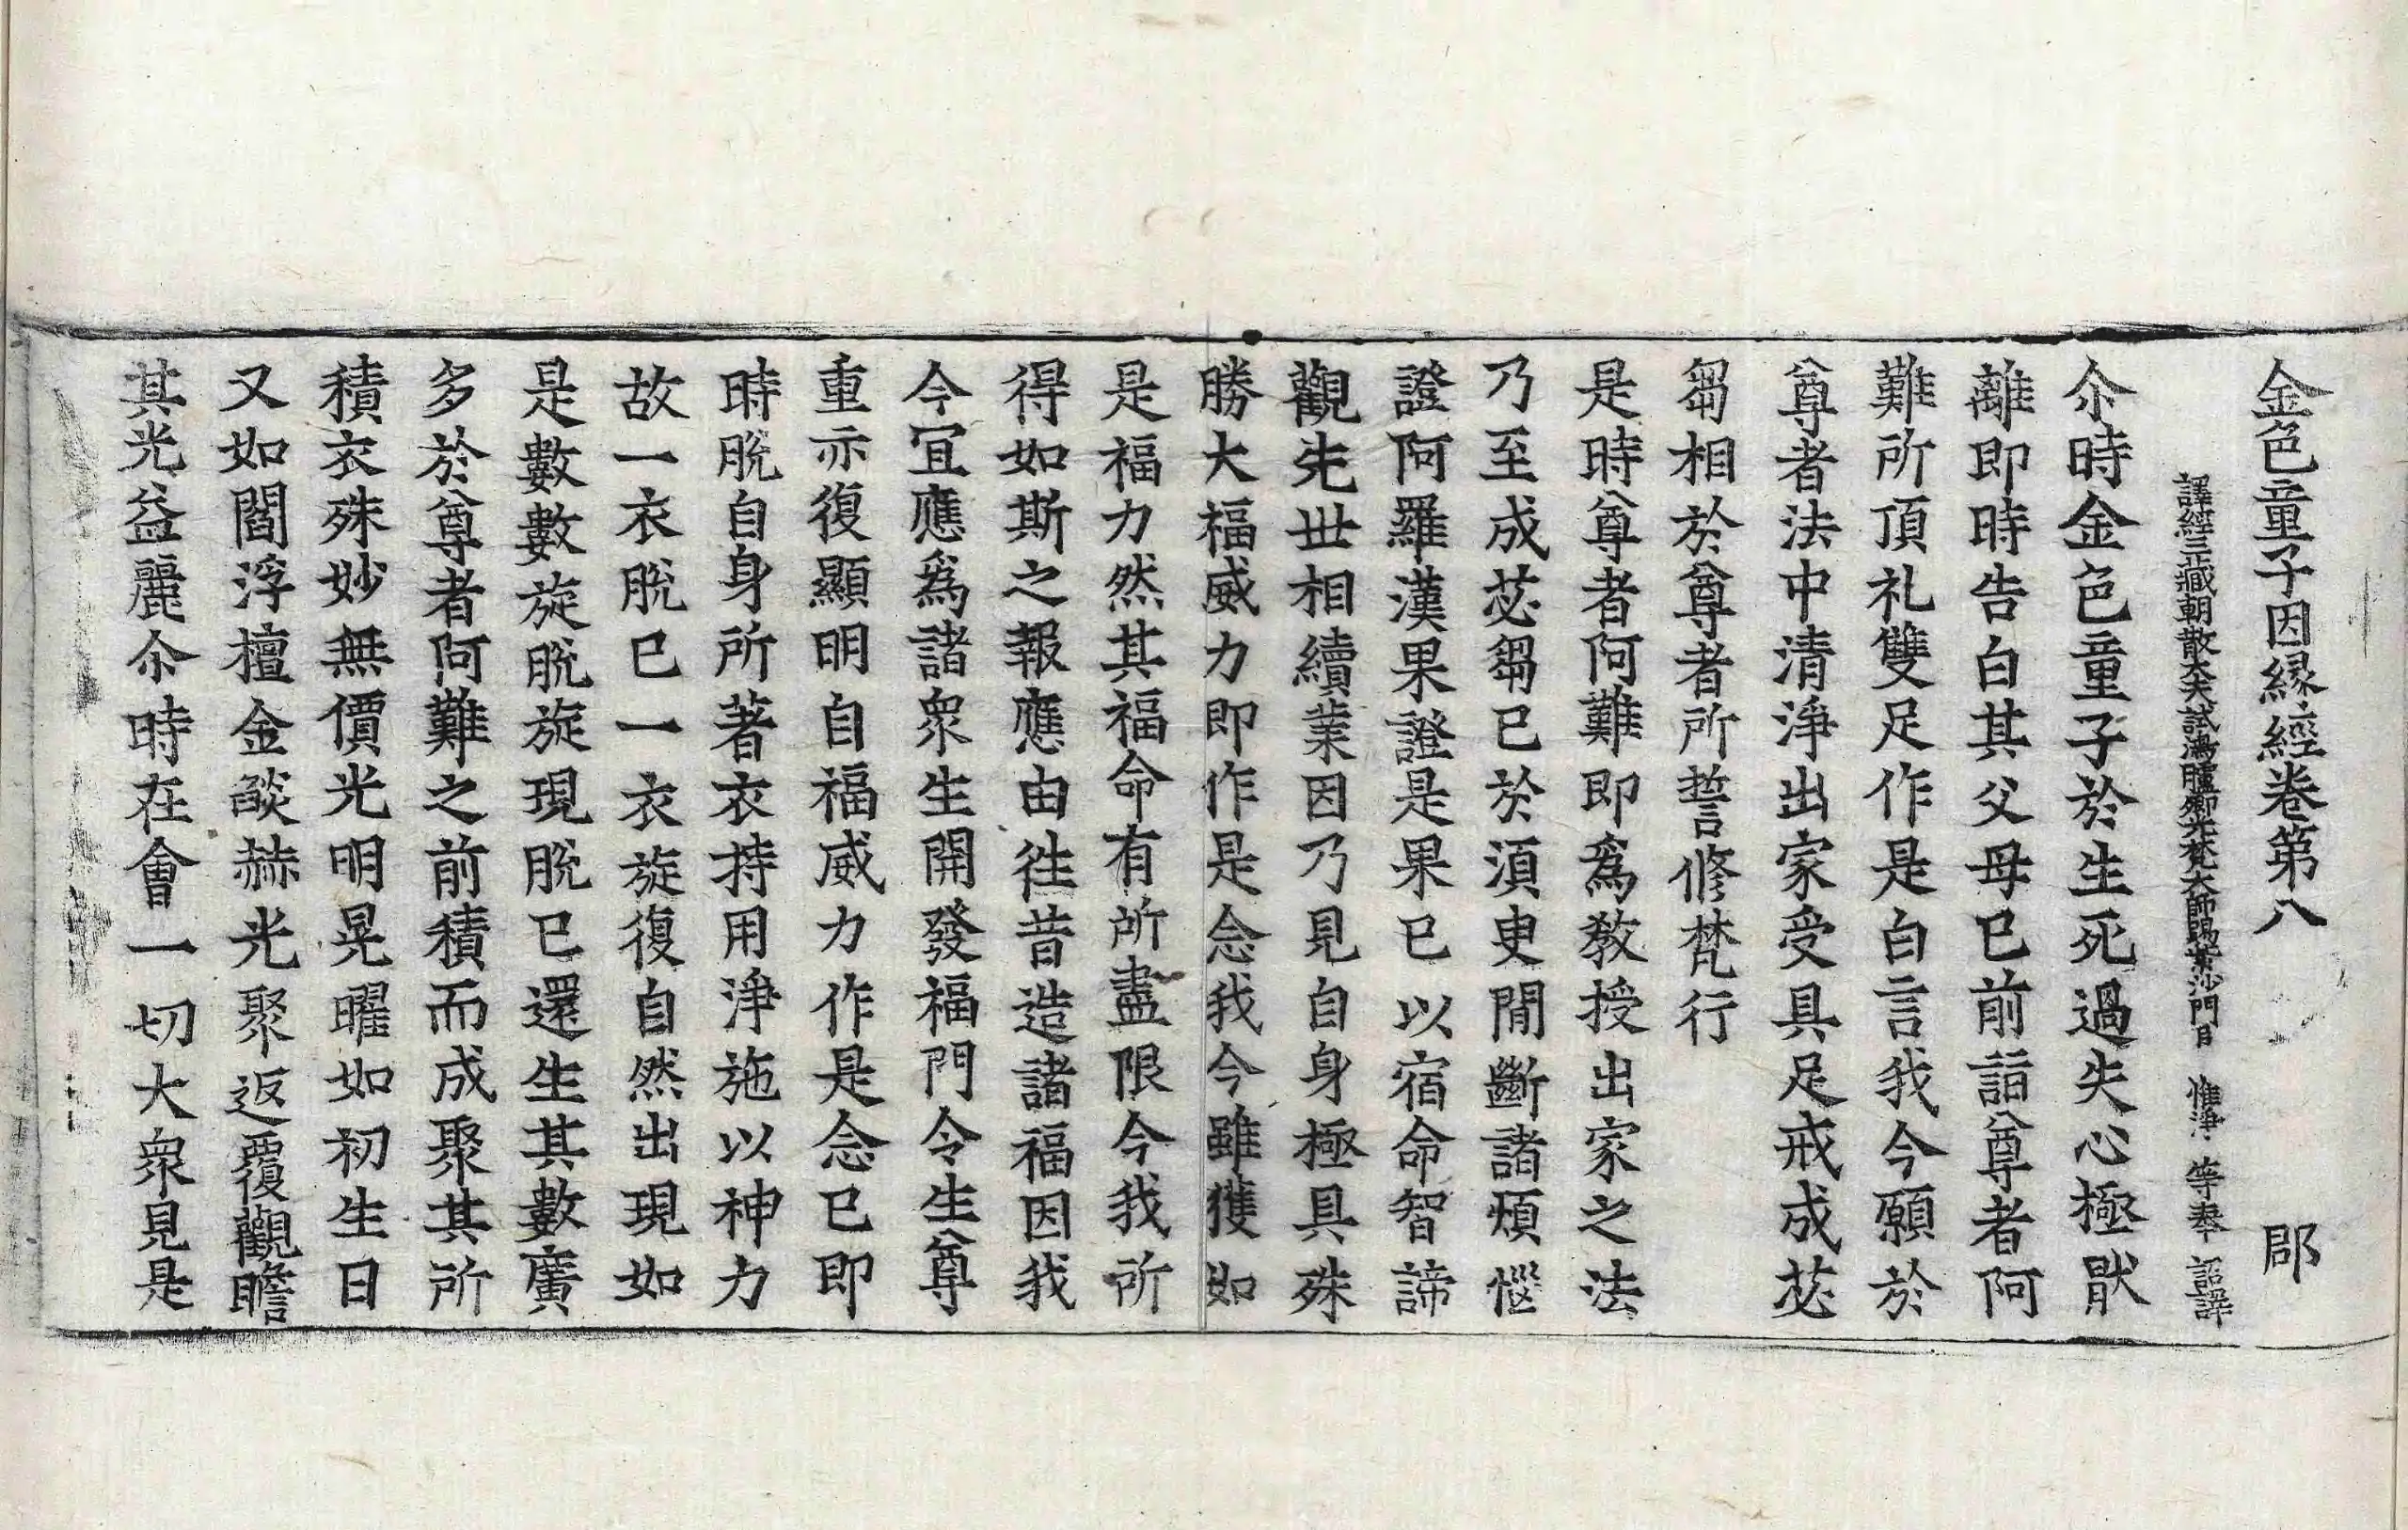 金色童子因縁經卷第八 郡
譯經三藏朝散大夫試鴻臚卿光梵大師賜紫沙門臣 惟淨 等奉 詔譯
尒時金色童子於生死過失心極猒
離即時告白其父母已前詣尊者阿
難所頂礼雙足作是白言我今願於
尊者法中清淨出家受具足戒成苾
芻相於尊者所誓修梵行
是時尊者阿難即爲教授出家之法
乃至成苾芻已於須臾閒斷諸煩惱
證阿羅漢果證是果已以宿命智諦
觀先世相續業因乃見自身極具殊
勝大福威力即作是念我今雖獲如
是福力然其福命有所盡限今我所
得如斯之報應由徃昔造諸福因我
今宜應爲諸衆生開發福門令生尊
重亦復顯明自福威力作是念已即
時脫自身所著衣持用淨施以神力
故一衣脫已一衣旋復自然出現如
是數數旋脫旋現脫已還生其數廣
多於尊者阿難之前積而成聚其所
積衣殊妙無價光明晃曜如初生日
又如閻浮檀金燄赫光聚返覆觀瞻
其光益麗尒時在會一切大衆見是